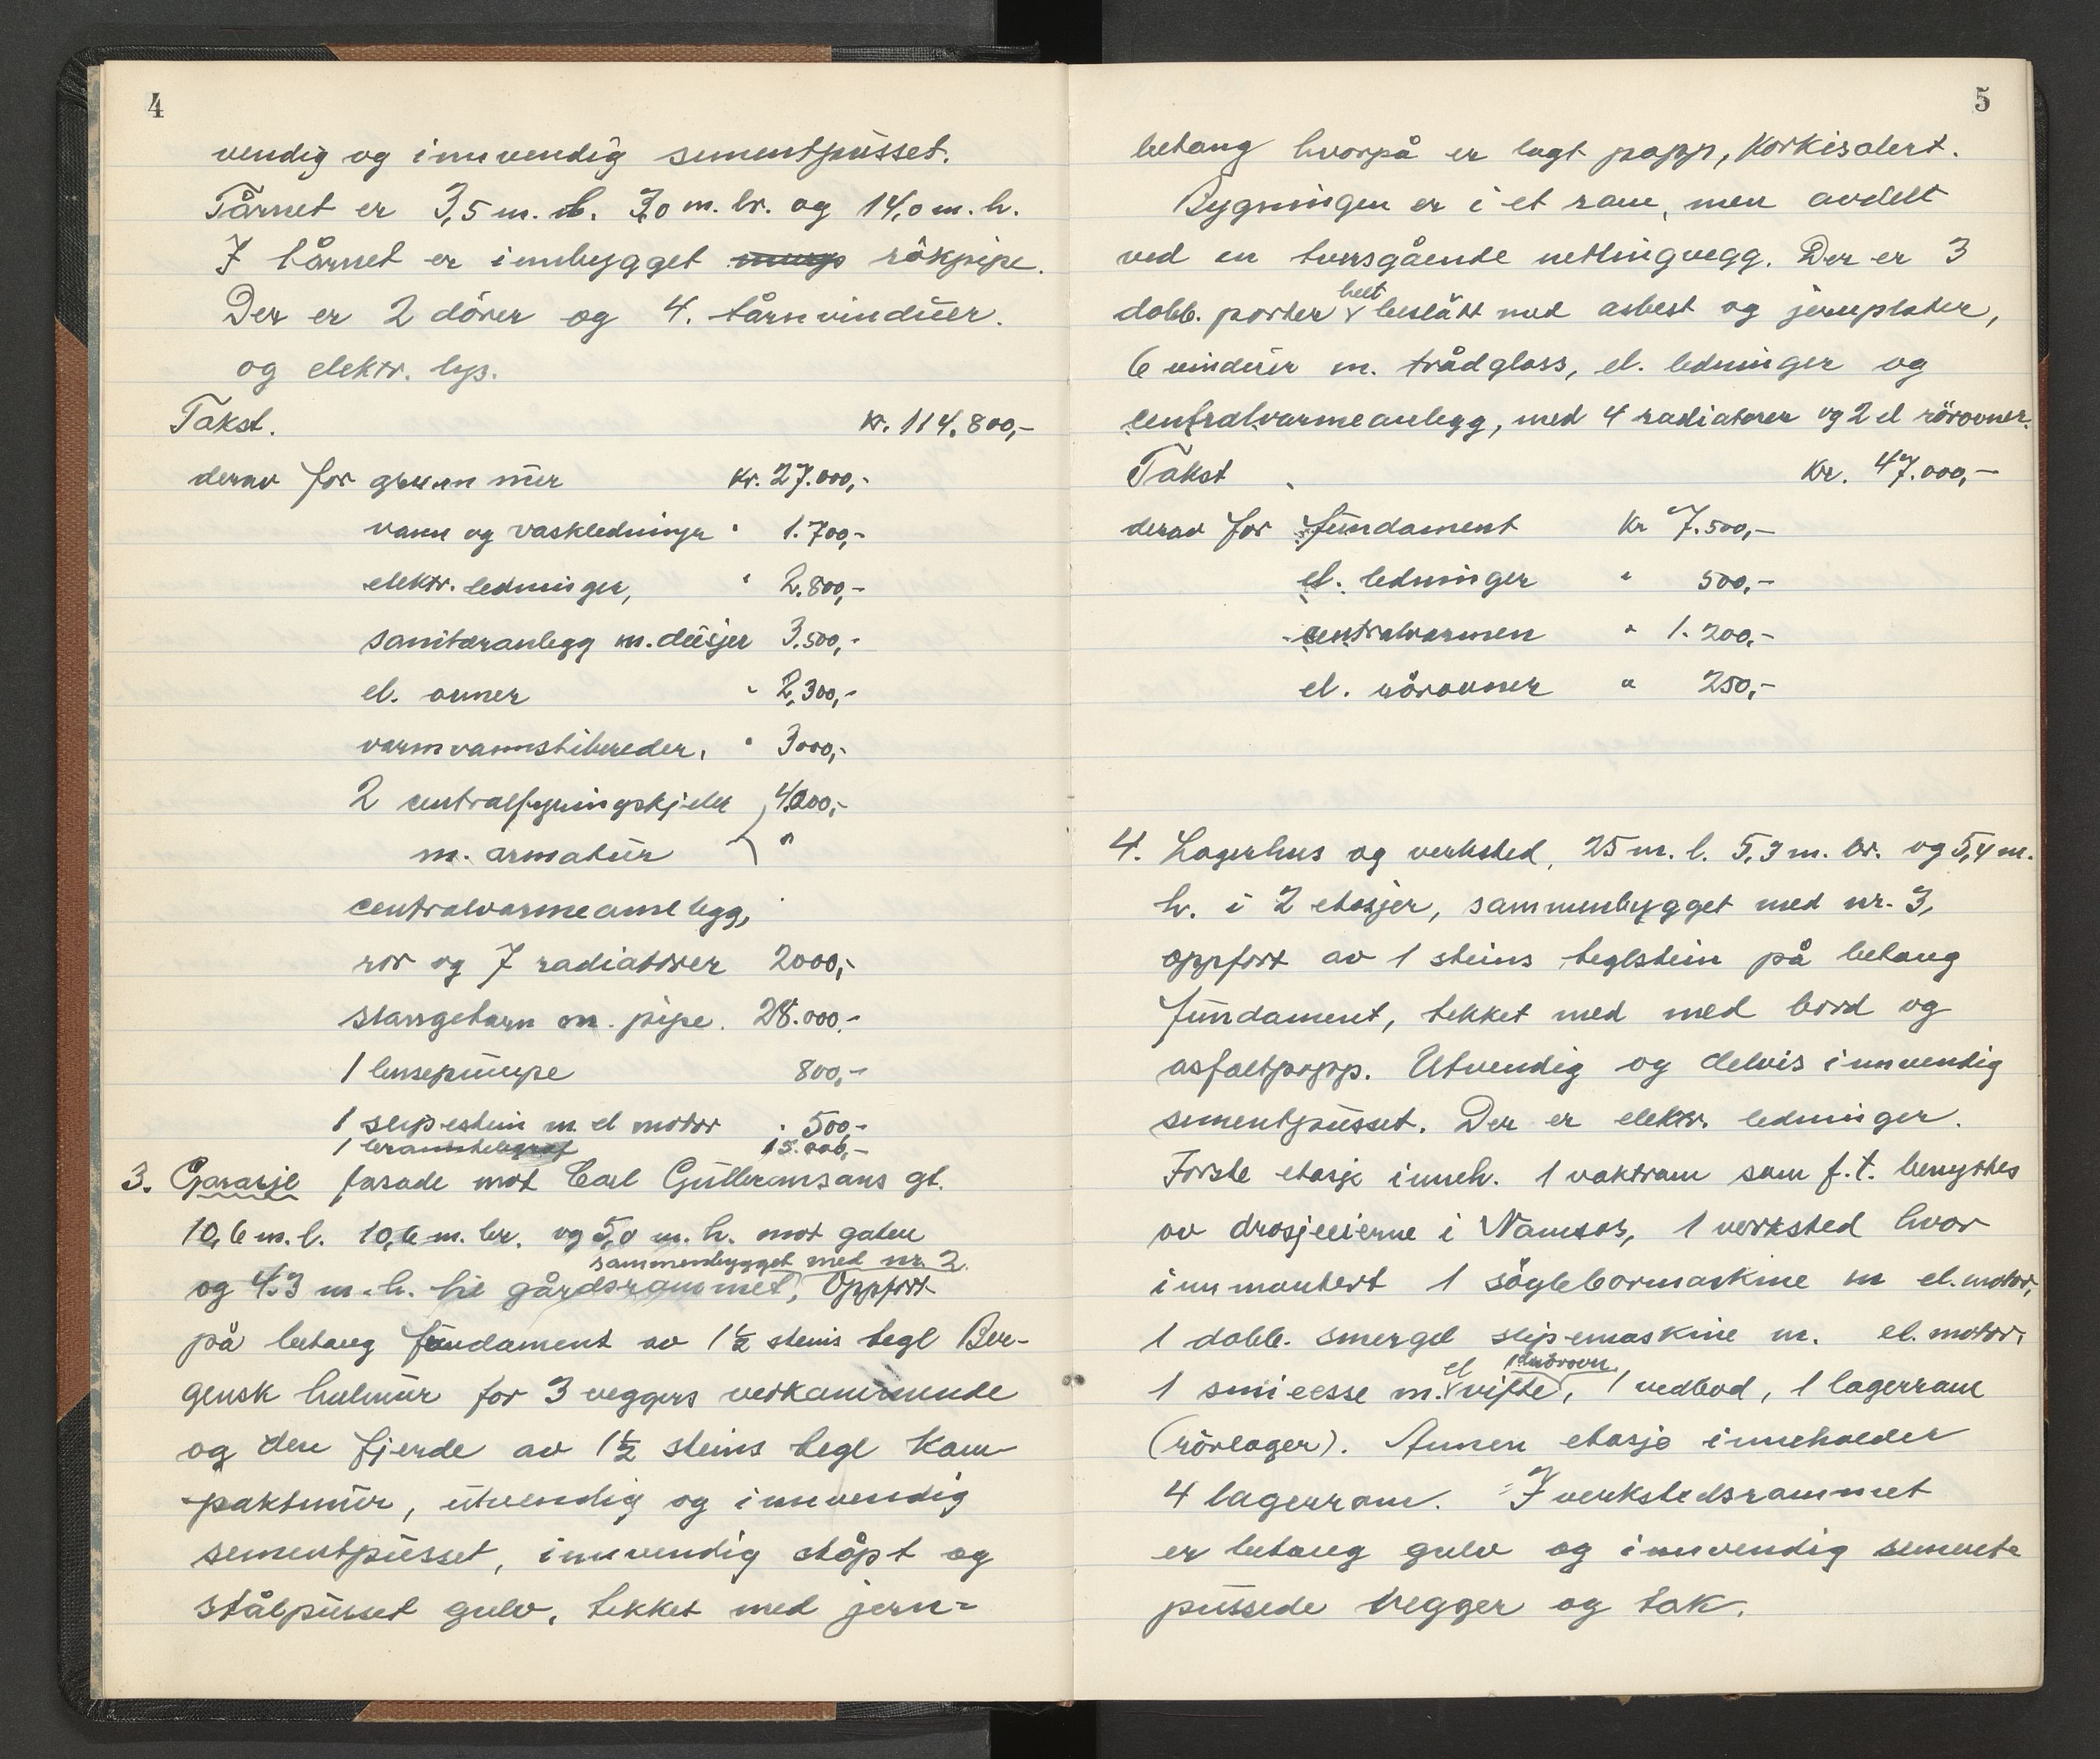 4
vendig og innvendig sementpusset.
Tårnet er 3,5 m. l. 3,0 m. br. og 14,0 m. h.
I tårnet er innbygget rökpipe.
Der er 2 dörer og 4. tårnvinduer.
og elektr. lys.
Takst. kr. 114.800,-
derav for grunnmur kr. 27.000,-
vann og vaskledninger " 1.700,-
elektr. ledninger, " 2.800,-
sanitæranlegg m. dusjer 3.500,-
el. ovner " 2,300,-
varmvannstibereder, " 3000,-
2 centralfyringskjeler 4000,-
m. armatur "
centralvarmeanlegg,
rör og 7 radiatorer 2000,-
slangetårn m. pipe. 28.000.-
1 lensepumpe 800,-
1 slipestein m. el motor . 500,-
1 branntelegraf 15.000,-
3. Garasje fasade mot Carl Gulbransons gt.
10,6 m. l. 10,6 m. br. og 5,0 m. h. mot gaten
sammenbygget med nr. 2.
og 4.3 m. h. til gårdsrommet, Oppfört
på betong fundament av 1½ steins tegl Ber-
gensk hulmur for 3 veggers vedkommende
og den fjerde av 1½ steins tegl kom-
paktmur, utvendig og innvendig
sementpusset, innvendig stöpt og
stålpusset gulv, tekket med jern=
5
betong hvorpå er lagt papp, korkisolert.
Bygningen er i et rom, men avdelt
ved en tversgående nettingvegg. Der er 3
helt
dobb. porter beslått med asbest og jernplater,
6 vinduer m. trådglass, el. ledninger og
centralvarmeanlegg, med 4 radiatorer og 2 el rörovner.
Takst Kr. 47.000,-
derav for fundament Kr 7.500,-
el. ledninger " 500,-
centralvarmen " 1.200,-
el. rörovner " 250,-
4. Lagerhus og verksted, 25 m. l. 5,3 m. br. og 5,4 m.
h. i 2 etasjer, sammenbygget med nr. 3,
oppfört av 1 steins teglstein på betong
fundament, tekket med med bord og
asfaltpapp. Utvendig og delvis innvendig
sementpusset. Der er elektr. ledninger.
Förste etasje inneh. 1 vaktrom som f.t. benyttes
av drosjeeierne i Namsos, 1 verksted hvor
innmontert 1 söyleboremaskine m el. motor,
1 dobb. smergel slipemaskine m. el. motor,
el 1 el rörovn
1 smiesse m. vifte, 1 vedbod, 1 lagerrom
(rörlager). Annen etasje inneholder
4 lagerrom. I verkstedsrommet
er betong gulv og innvendig sement=
pussede vegger og tak.